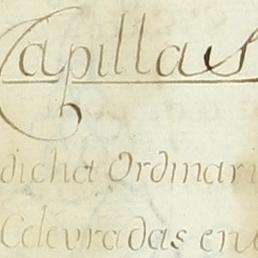 Capillas
dicha Ordinari
Celevradas en